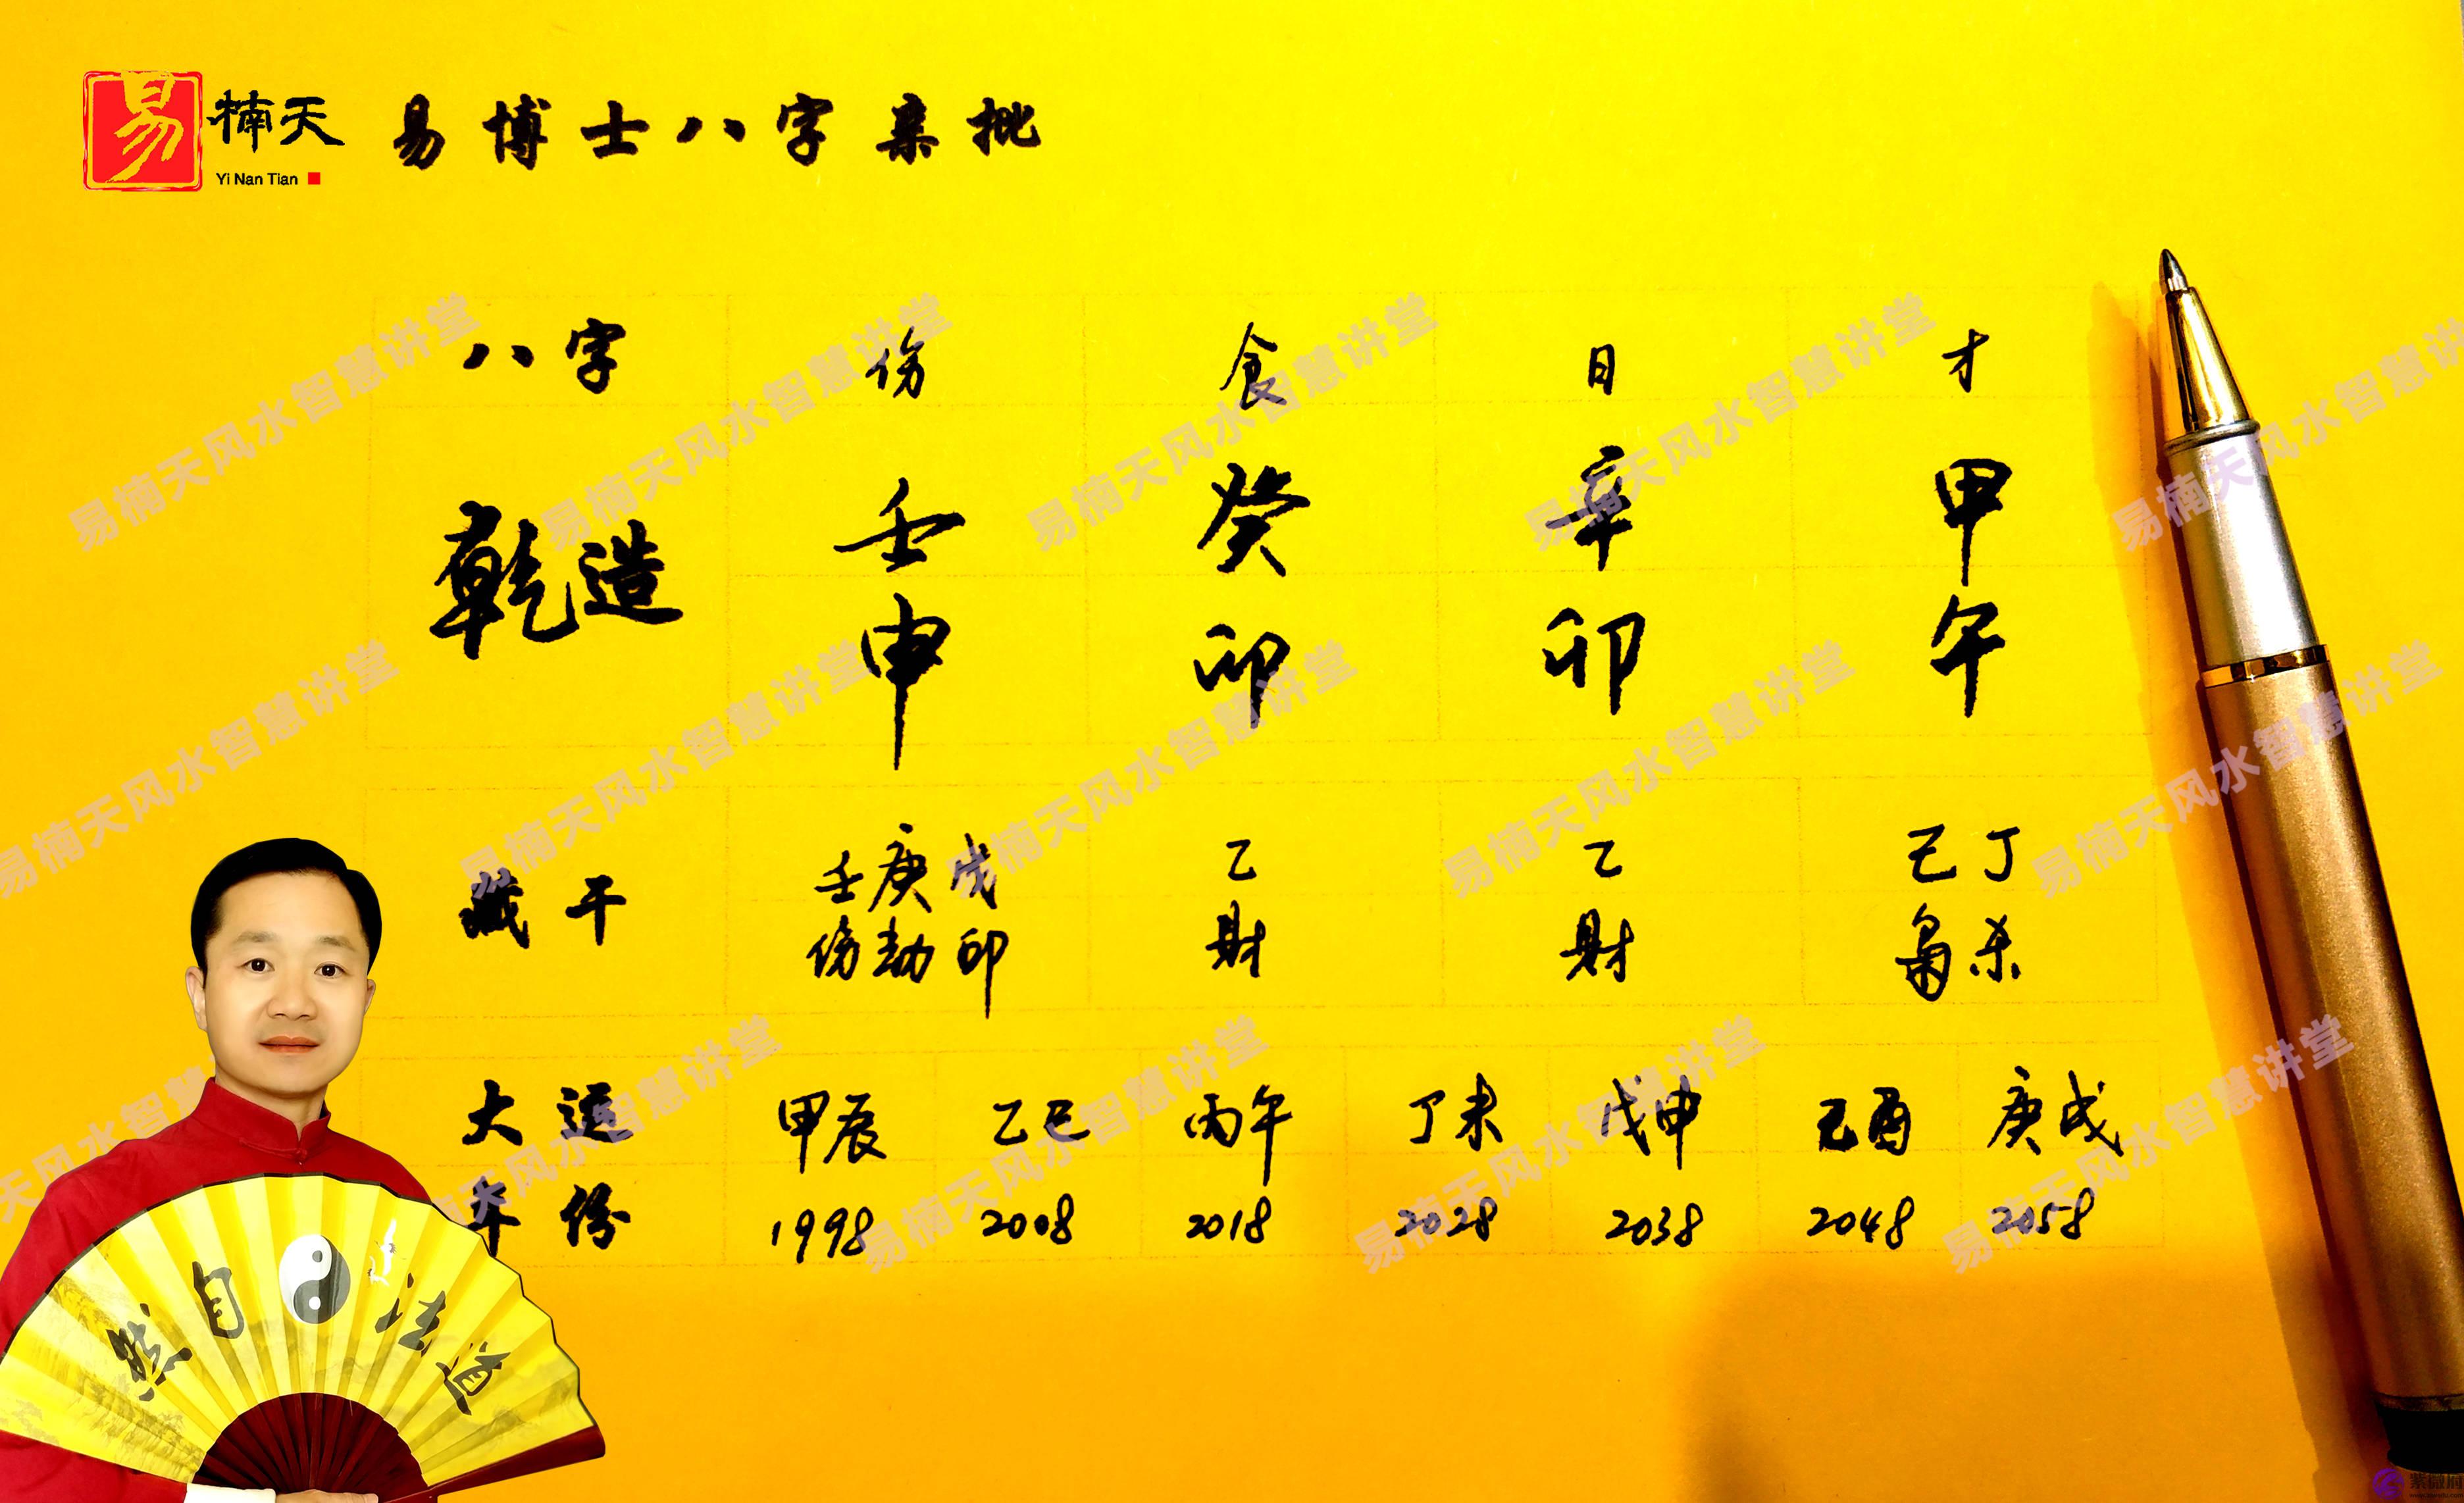 易 楠天 易博士八字亲批
Yi Nan Tian
八字 伤 食 日 才
乾造 壬 癸 辛 甲
申 卯 卯 午
藏干 壬庚戊 乙 乙 己丁
伤劫印 财 财 枭杀
大运 甲辰 乙巳 丙午 丁未 戊申 己酉 庚戌
年份 1998 2008 2018 2028 2038 2048 2058
然自法道
易楠天风水智慧讲堂